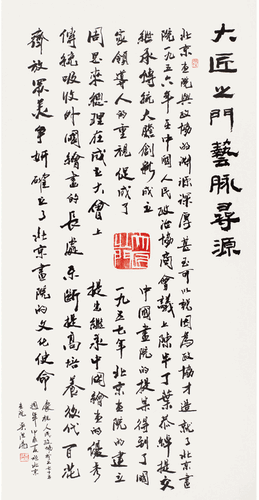 大匠之门藝脉尋源
北京畫院與政協的淵源深厚甚至可以説因為政協才造就了北京畫
院一九五六年在中國人民政治協商會議上陳半丁葉恭綽提交
繼承傳統大膽創新成立中國畫院的提案得到了國
家領導人的重視促成了一九五七年北京畫院的建立
周恩來總理在成立大會上提出繼承中國繪畫的優秀
傳統吸收外國繪畫的長處不断提高培養後代百花
齊放眾美争妍確立了北京畫院的文化使命
慶祝人民政協成立七十五
週年甲辰夏於北京
畫院吴洪亮
大匠之門